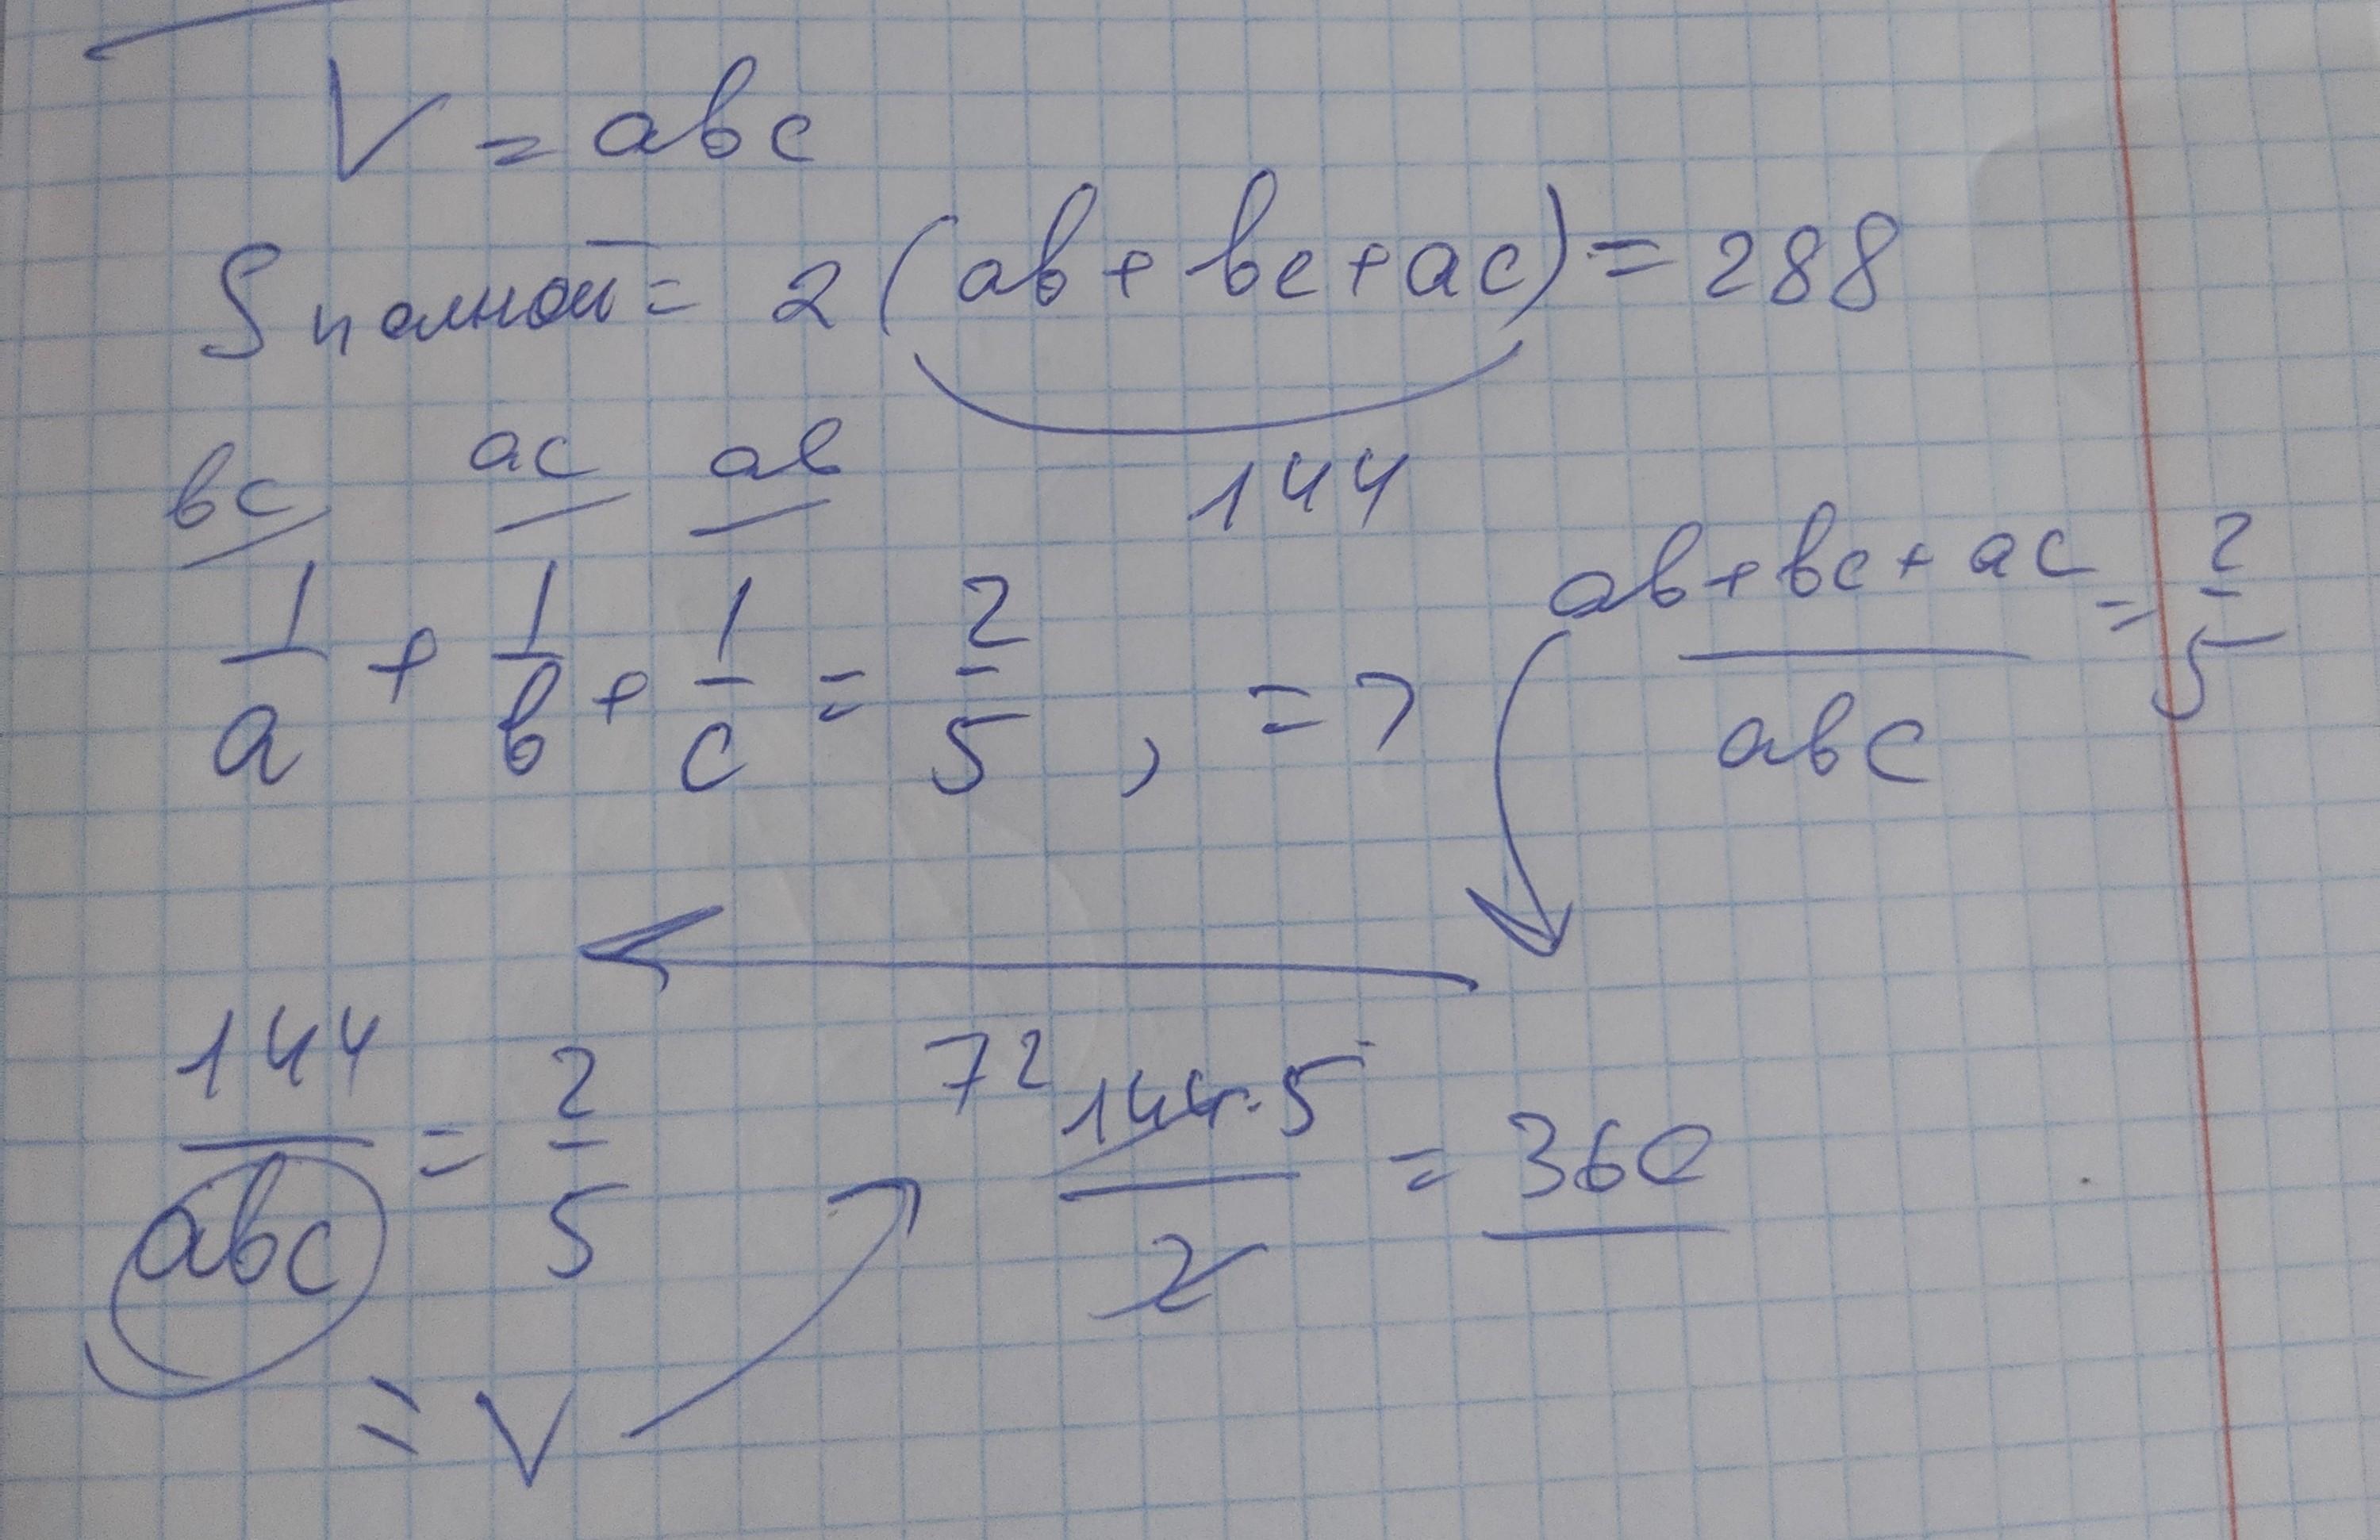 V = abc
Sполной = 2(ab + bc + ac) = 288
144
bc ac ab
1/a + 1/b + 1/c = 2/5 , => (ab + bc + ac)/abc = 2/5
144/abc = 2/5
72 144·5/2 = 360
= V